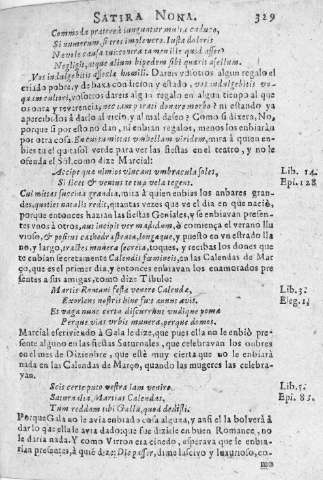 SATIRA NONA. 329
Commoda prætereà iungantur multa caduco,
Si numerum, si tres impleuero. Iusta doloris
Neuole causa tui: contra tamen ille quid affert?
Negligit, atque alium bipedem sibi quærit asellum.
Vos indulgebitis assecla humili. Dareis vosotros algun regalo el
criado pobre, y de baxa condicion y estado, vos indulgebitis vn
quam cultori, vosotros dareis algun regalo en algun tiempo al que
os honra y reverencia, nec iam parati donare morbo? ni estando ya
apercibidos à darlo al vicio, y al mal deseo? Como si dixera, No,
porque si por esto no dan, ni enbian regalos, menos los enbiarán
por otra cosa. En cui tu mittas vmbellam viridem, mira à quien en-
bies tu el quitasol verde para ver las fiestas en el teatro, y no le
ofenda el Sol, como dize Marcial:
Accipe quæ nimios vincant vmbracula soles, Lib. 14.
Si licet & ventus te tua vela tegent. Epi. 128
Cui mittas succina grandia, mira à quien enbies los anbares gran-
des, quoties natalis redit, quantas vezes que ve el dia en que naciò,
porque entonces hazian las fiestas Geniales, y se enbiavan presen-
tes vnos à otros, aut incipit ver madidum, ò comiença el verano llu
vioso, & positus cathedra strata, longaque, y puesto en vn estrado lla
no, y largo, tractes munera secreta, toques, y recibas los dones que
te enbian secretamente Calendis fœmineis, en las Calendas de Mar
ço, que es el primer dia, y entonces enbiavan los enamorados pre-
sentes a sus amigas, como dize Tibulo:
Martis Romani festæ venere Calendæ, Lib. 3.
Exoriens nostris hinc fuit annus avis. Eleg. 1.
Et vaga nunc certa discurrunt vndique pompa
Perque vias vrbis munera, perque domos.
Marcial escriviendo à Gala le dize, que pues ella no le enbiò pre-
sente alguno en las fiestas Saturnales, que celebravan los onbres
en el mes de Diziembre, que esté muy cierta que no le enbiará
nada en las Calendas de Março, quando las mugeres las celebra-
van.
Scis certe puto vestra iam venire Lib. 5.
Saturnalia, Martias Calendas, Epi. 85.
Tum reddam tibi Galla, quod dedisti.
Porque Gala no le avia enbiado cosa alguna, y assi el la bolverá à
dar lo que ella le avia dado: que fue dezirle en buen Romance, no
le daria nada. Y como Virron era cinedo, esperava que le enbia-
rian presentes, à què dize: Dic passer, dime lascivo y luxurioso, co-
mo